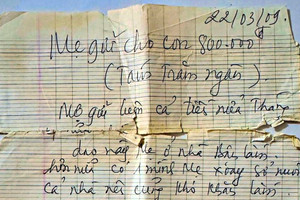 22/03/09.
Mẹ gửi cho con 800.000
(Tám Trăm ngàn).
Mẹ gửi luôn cả tiền nửa Tháng
dạo này Mẹ ở nhà
hơn nữa có 1 mình Mẹ xoay sở nuôi
cả nhà nên cũng khó khăn lắm.